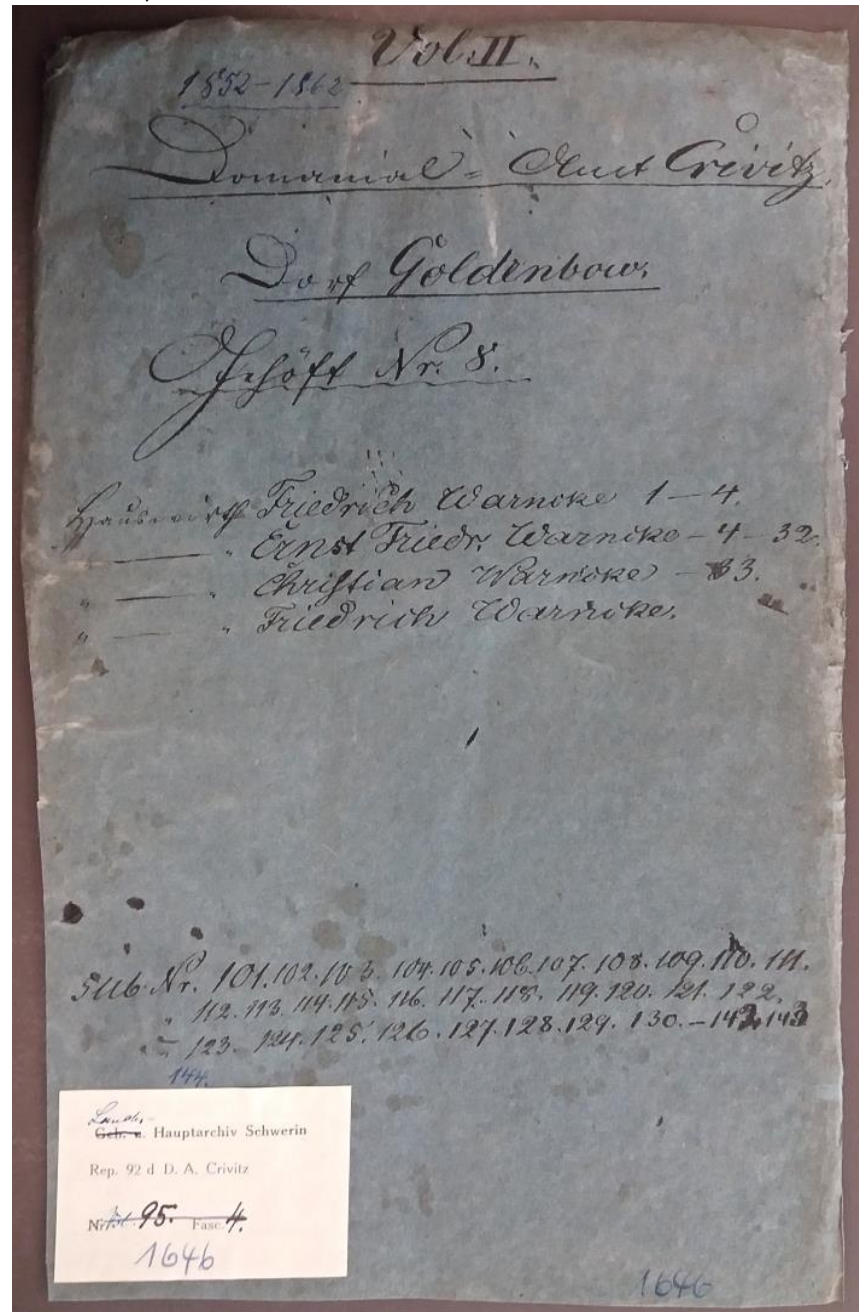 Vol. II.
1852-1862
Domanial- Amt Crivitz.
Dorf Goldenbow.
Gehöft Nr. 8.
Hauswirth Friedrich Warncke 1-4.
" — " Ernst Friedr. Warncke - 4-32.
" — " Christian Warncke - 33.
" — " Friedrich Warncke.
sub Nr. 101. 102. 103. 104. 105. 106. 107. 108. 109. 110. 111.
" 112. 113. 114. 115. 116. 117. 118. 119. 120. 121. 122.
" 123. 124. 125. 126. 127. 128. 129. 130. - 142, 143
144.
Landes-
Geh. u. Hauptarchiv Schwerin
Rep. 92 d D. A. Crivitz
Nr. 95. Fasc. 4.
1646
1646